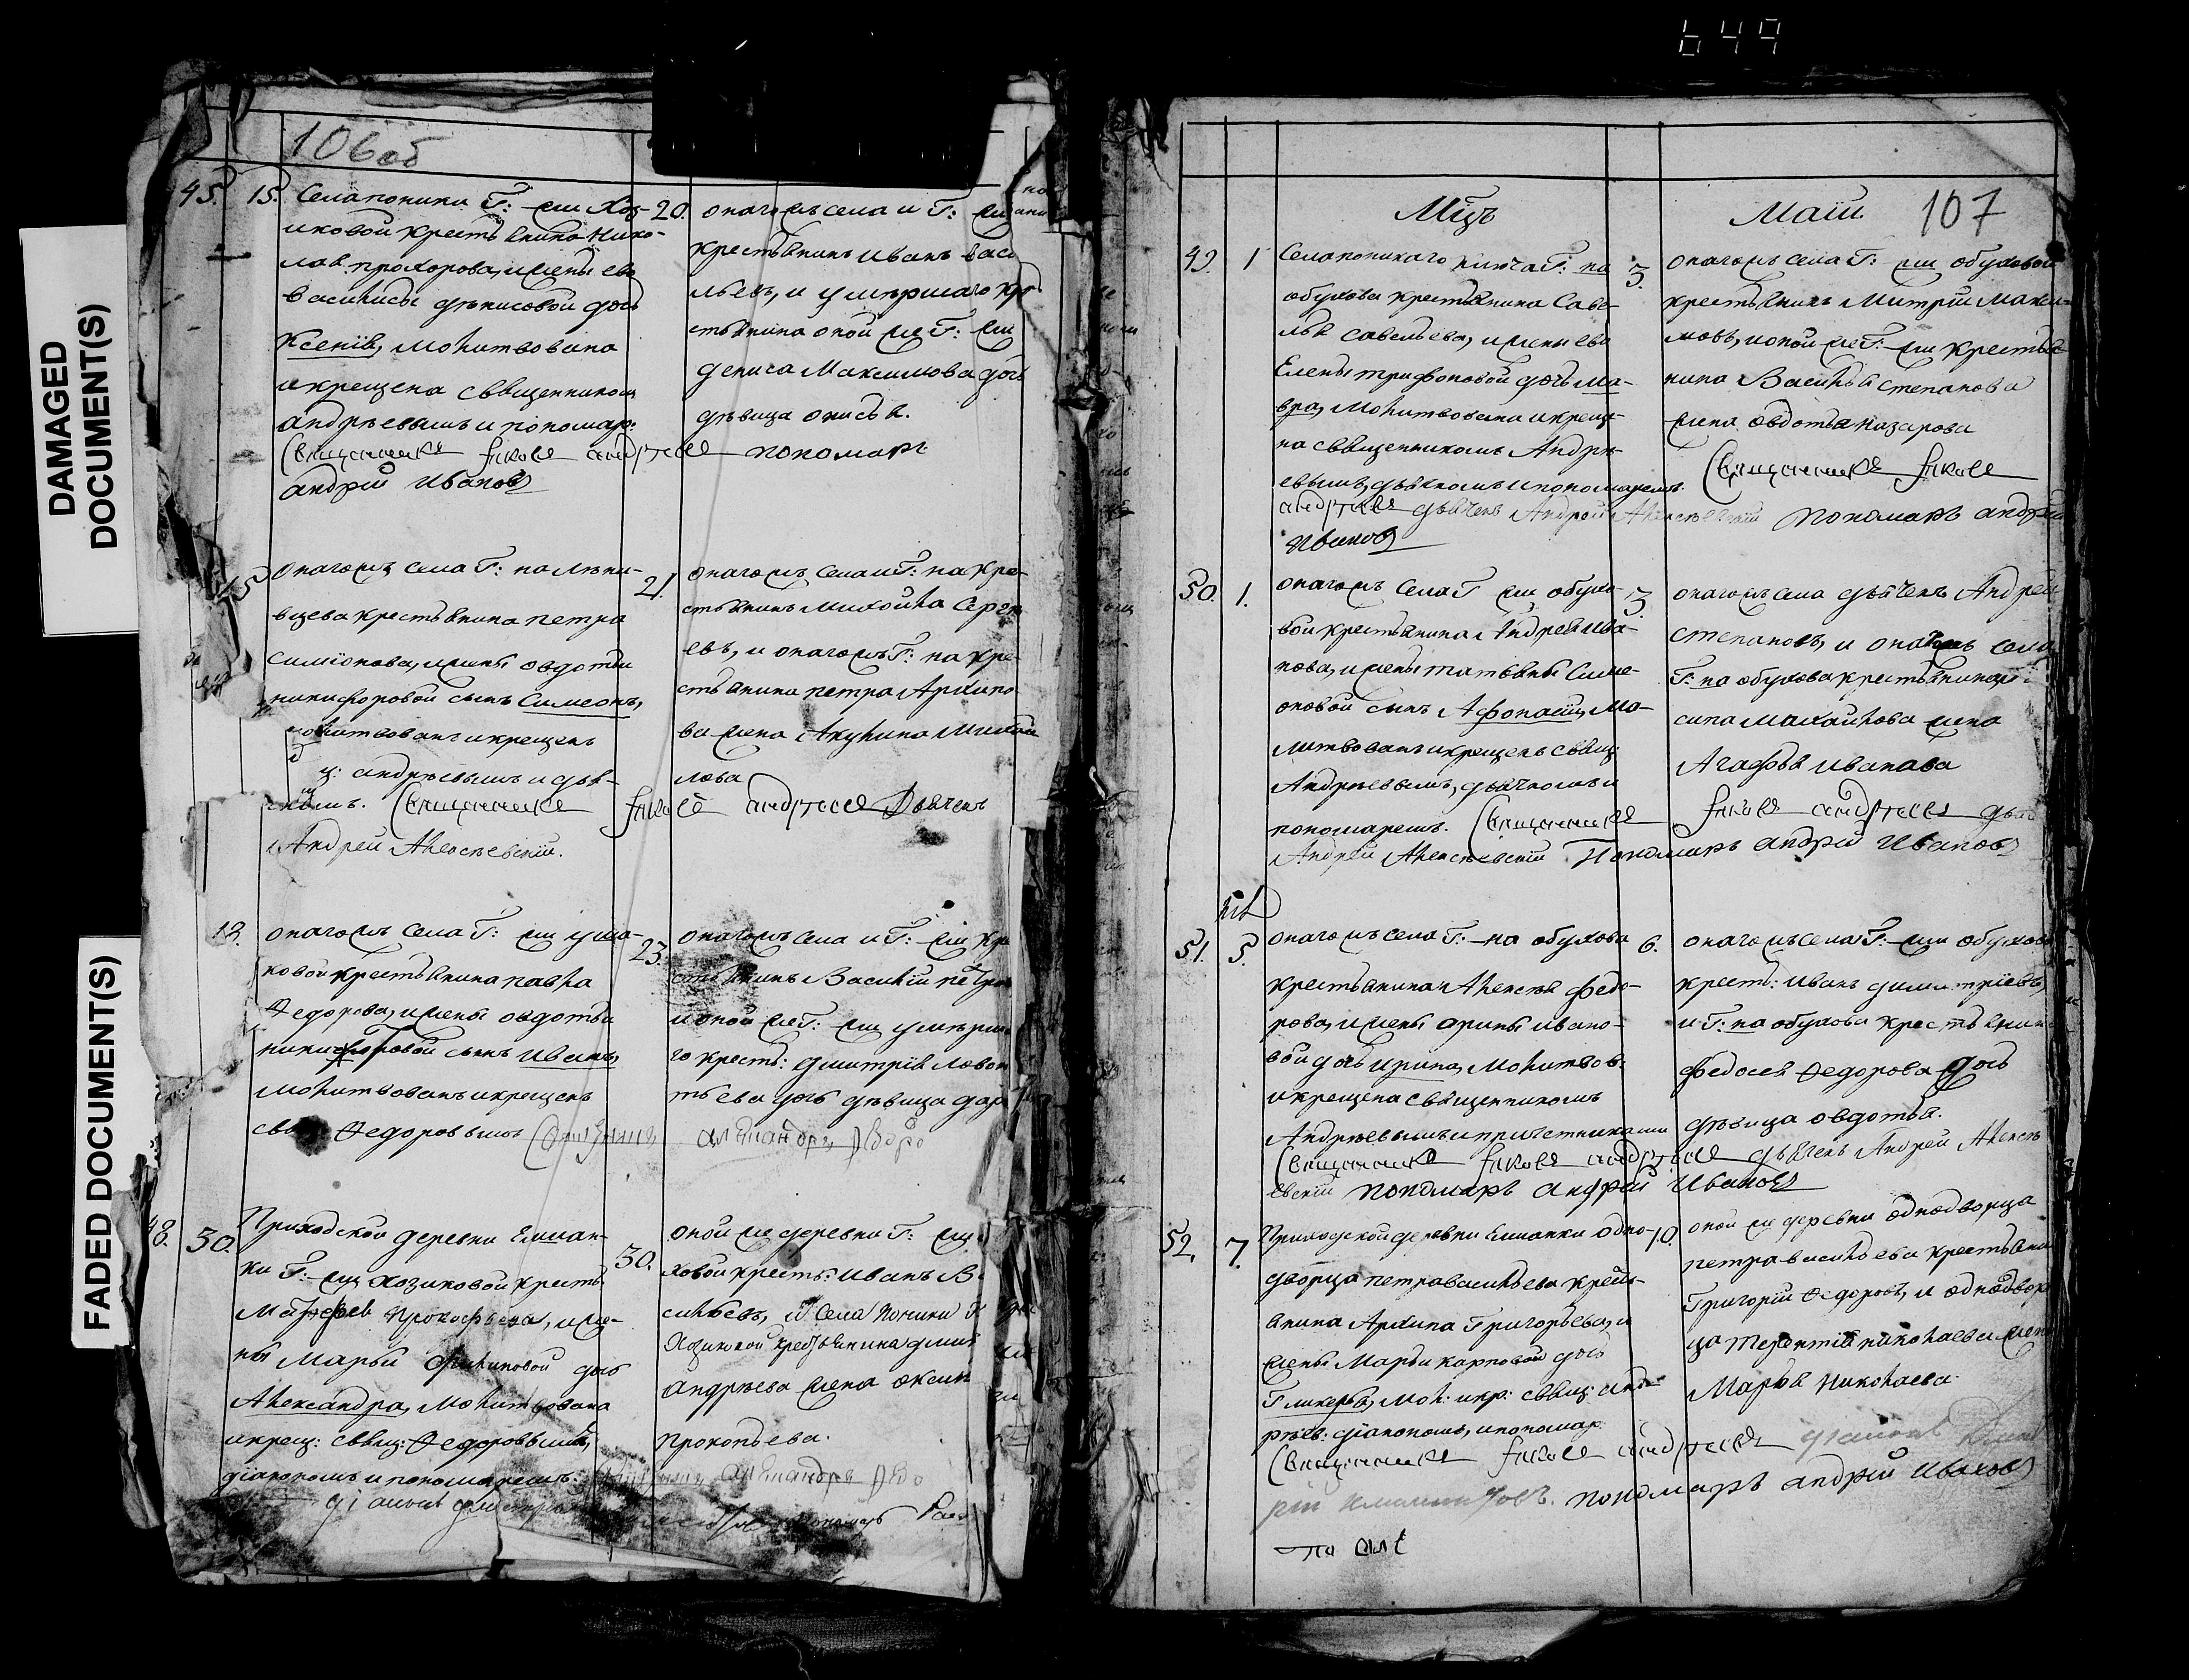 649
DAMAGED
DOCUMENT(S)
FADED DOCUMENT(S)
106 об
45. 15. Села поники Г: жи Хоз-
иковой крестьянина Нико-
лая прохорова, и жены ево
василисы денисовой дочь
Ксенiя, молитвована
и крещена священником
андреевымъ и пономар:
20. онагожъ села и Г: жи
крестьянинъ иванъ васи
льевъ, и умершаго кре
стьянина оной же Г: жи
дениса Максимова дочь
девица анисья.
Священникъ Iаковъ андреевъ пономарь
андрiй ивановъ
онагожъ села Г: на
вцева крестьянина петра
симiонова, и жены овдотьи
никифоровой сынъ Симеонъ,
молитвованъ и крещенъ
ц: андреевымъ и дья-
чкомъ.
21. онагожъ села и Г: на кре-
стьянинъ михайла Серге
евъ, и онагожъ Г: на кре-
стьянина петра Архипо
ва жена Акулина михай
лова
Священникъ Iаковъ андреевъ Дьячекъ
Андрей Алексеевскiй.
онагожъ села Г: жи уша-
ковой крестьянина павла
Ѳедорова, и жены овдотьи
никифоровой сынъ иванъ,
молитвованъ и крещенъ
Ѳедоровымъ
23. онагожъ села и Г: жи кре
стьянинъ Василiй петро
и оной же Г: жи умерша
го кресть: дмитрiя левон
тьева дочь девица дар
48. 30. Приходской деревни Ешман-
ки Г: жи хозиковой кресть
Матфея прокофьева, и же-
ны Марьи филиповой дочь
Александра, молитвована
и крещ: свящ: Ѳедоровымъ,
дiакономъ и пономаремъ.
30. оной же деревни Г: жи
ховой кресть: иванъ Ва
сильевъ, и села поники Г
Хозиковой крестьянина дмит
андреева жена оксинья
прокопьева.
Мцъ Маiи 107
49. 1 Села поникаго ключа Г: на
обухова крестьянина Саве-
лья савельева, и жены ево
Елены трифоновой дочь Ма-
вра, молитвована и креще-
на священникомъ Андре-
евымъ, дьячкомъ и пономаремъ.
3. онагожъ села Г: жи обуховой
крестьянинъ Митрiй Макси-
мовъ, и оной же Г: жи крестья-
нина Василья степанова
жена овдотья назарова
Священникъ Iаковъ
андреевъ дьячекъ Андрей Алексеевскiй пономарь андрей
Ивановъ
50. 1. онагожъ села Г жи обухо-
вой крестьянина Андрея ива-
нова, и жены татьяны симе-
оновой сынъ Афонасiй, мо-
литвованъ и крещенъ свящ
Андреевымъ, дьячкомъ и
пономаремъ.
3 онагожъ села дьячекъ Андрей
степановъ, и онагожъ села
Г: на обухова крестьянина
сипа михайлова жена
Агафья иванава
Священникъ Iаковъ андреевъ дьяч
Андрей Алексеевскiй Пономарь андрiй Ивановъ
51. 5. онагожъ села Г: на обухова
крестьянина Алексея федо-
рова, и жены арины ивано-
вой дочь ирина, молитвов:
и крещена священникомъ
Андреевымъ и причетниками
6. онагожъ села Г: жи обухово
кресть: иванъ димитрiевъ,
и Г: на обухова крестьянина
федосея Ѳедорова дочь
девица овдотья.
Священникъ Iаковъ андреевъ дьячекъ Андрей Алексе
евскiй пономарь андрей Ивановъ
52. 7. Приходской деревни Ешманки одно-
дворца петра васильева крестъ-
янина Архипа Григорьева, и
жены Марьи карповой дочь
Гликерья, мол: и кр: свящ: анд-
реев: дiакономъ, и пономар.
10. оной же деревни однодворца
петра васильева крестьяни
Григорiй Ѳедоровъ, и однодвор
ца терентiя николаева жен
Марья николаева.
Священникъ Iаковъ андреевъ дiаконъ
пономарь андрiй Ивановъ